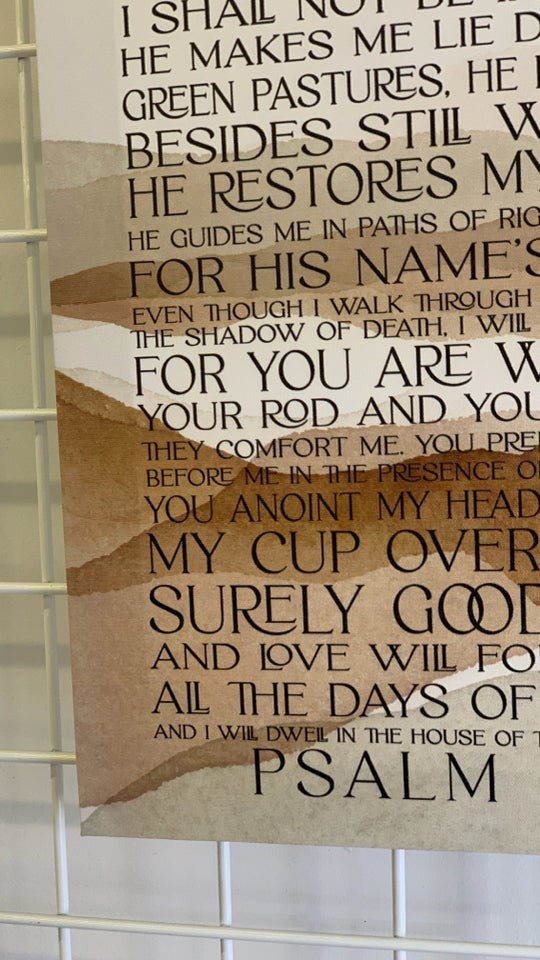 I SHALL NOT BE
HE MAKES ME LIE D
GREEN PASTURES, HE
BESIDES STILL W
HE RESTORES MY
HE GUIDES ME IN PATHS OF RIG
FOR HIS NAME'S
EVEN THOUGH I WALK THROUGH
THE SHADOW OF DEATH, I WILL
FOR YOU ARE W
YOUR ROD AND YOU
THEY COMFORT ME. YOU PREP
BEFORE ME IN THE PRESENCE OF
YOU ANOINT MY HEAD
MY CUP OVER
SURELY GOOD
AND LOVE WILL FO
ALL THE DAYS OF
AND I WILL DWELL IN THE HOUSE OF T
PSALM